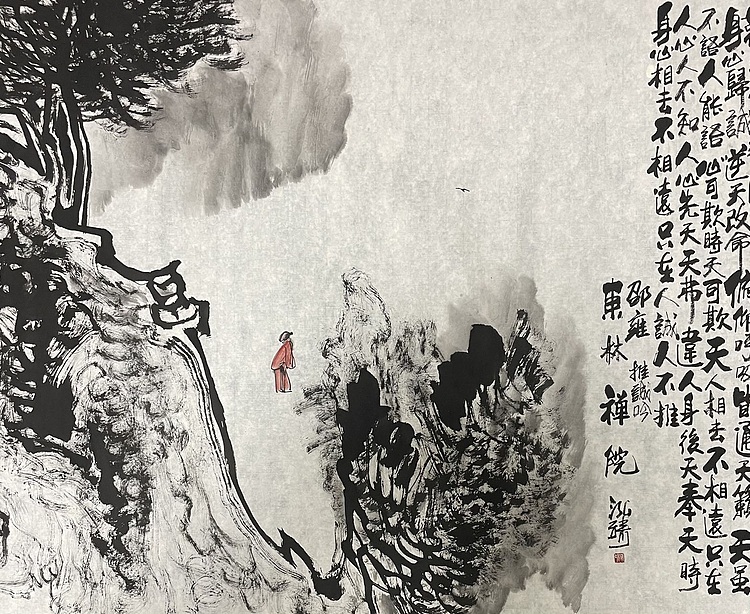 身心歸誠逆天改命呼吸通天籟天雖
不語人能語心可欺時天可欺天人相去不相遠只在
人心人不知人心先天天弗違人身後天奉天時
身心相去不相遠只在人誠人不推
邵雍 推誠吟
東林禪院